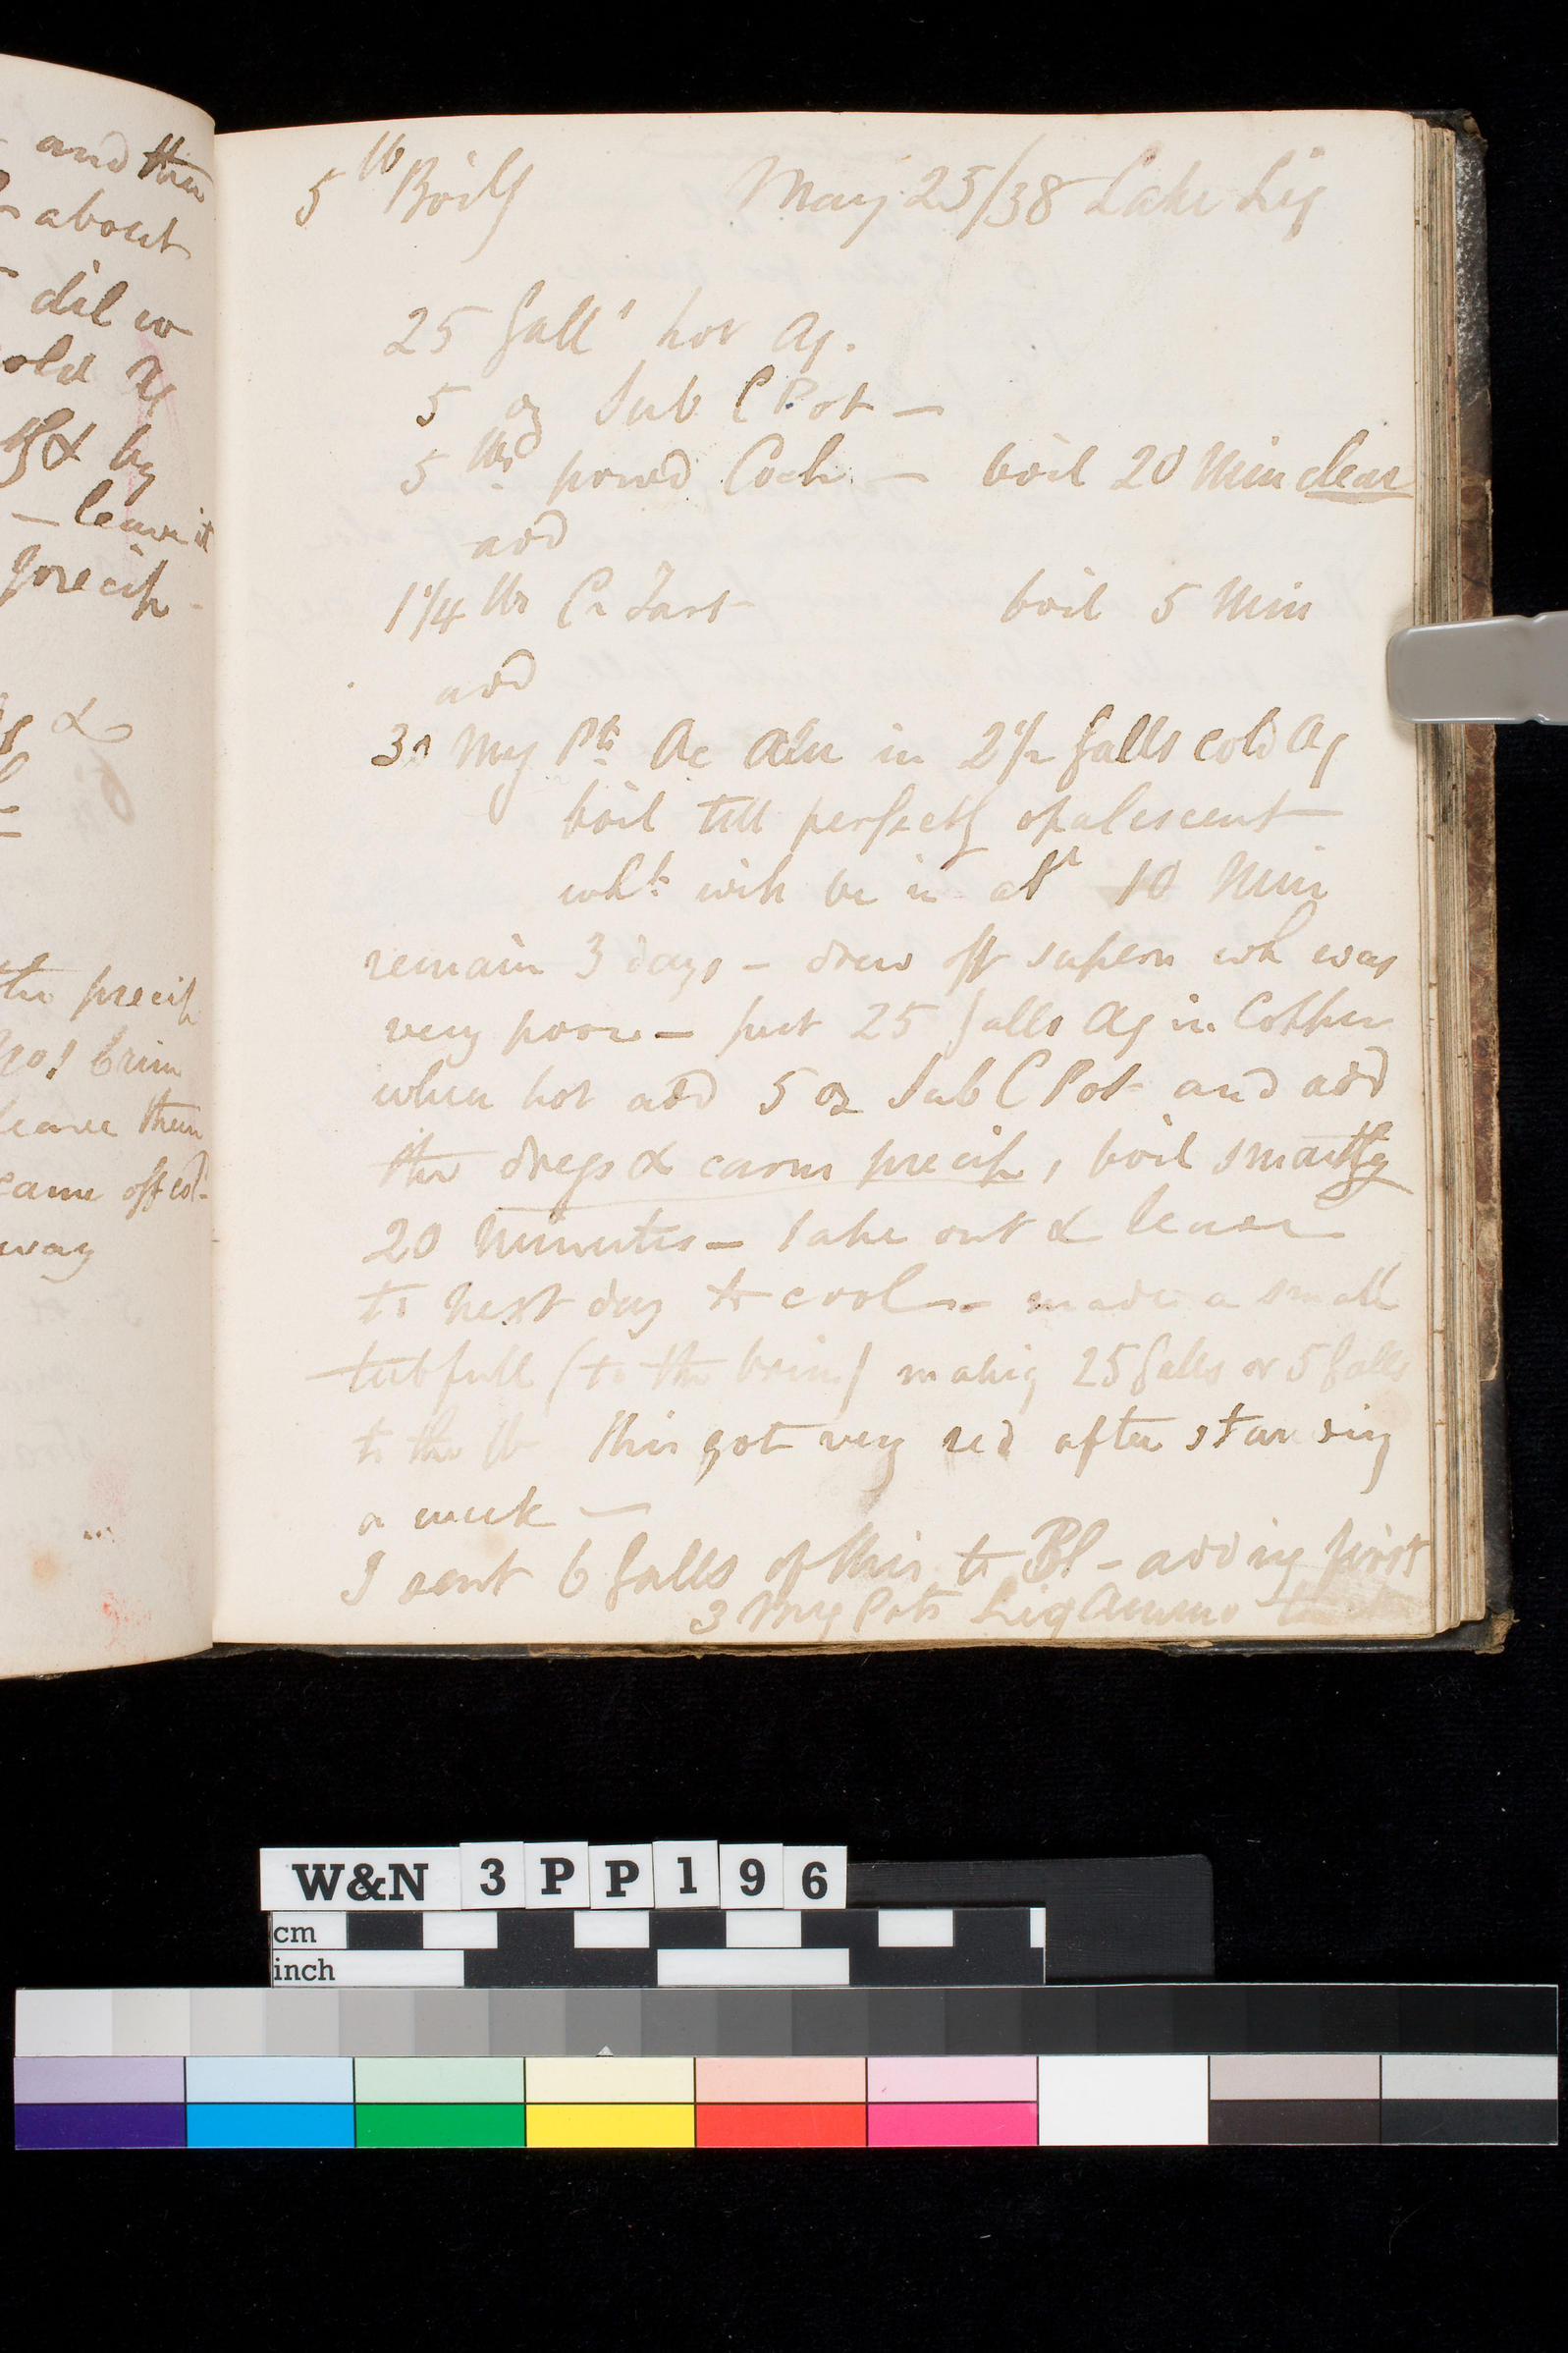 and then
about
dil w
old Aq
& by
— leave it
precip -
&
the precip
brim
leave them
came off col-
way
5 lb Boilg May 25/38 Lake Liq
25 Galls hot Aq.
5 oz Sub C Pot —
5 lbs powd Coch — boil 20 Min clear
add
1 1/4 lbs Cr Tart boil 5 Min
add
30 My Pts Ac Alu in 2 1/2 Galls cold Aq
boil till perfectly opalescent
wh will be in abt 10 Min
remain 3 days - drew off supern wh was
very poor - put 25 Galls Aq in Copper
when hot add 5 oz Sub C Pot and add
the dregs & carm precip, boil smartly
20 Minutes - take out & leave
to next day to cool - made a small
tubfull (to the brim) makig 25 Galls or 5 Galls
to the lb this got very red after standing
a week —
I sent 6 Galls of this to Bl - adding first
3 My Pots Liq Ammo
W&N 3PP196
cm
inch